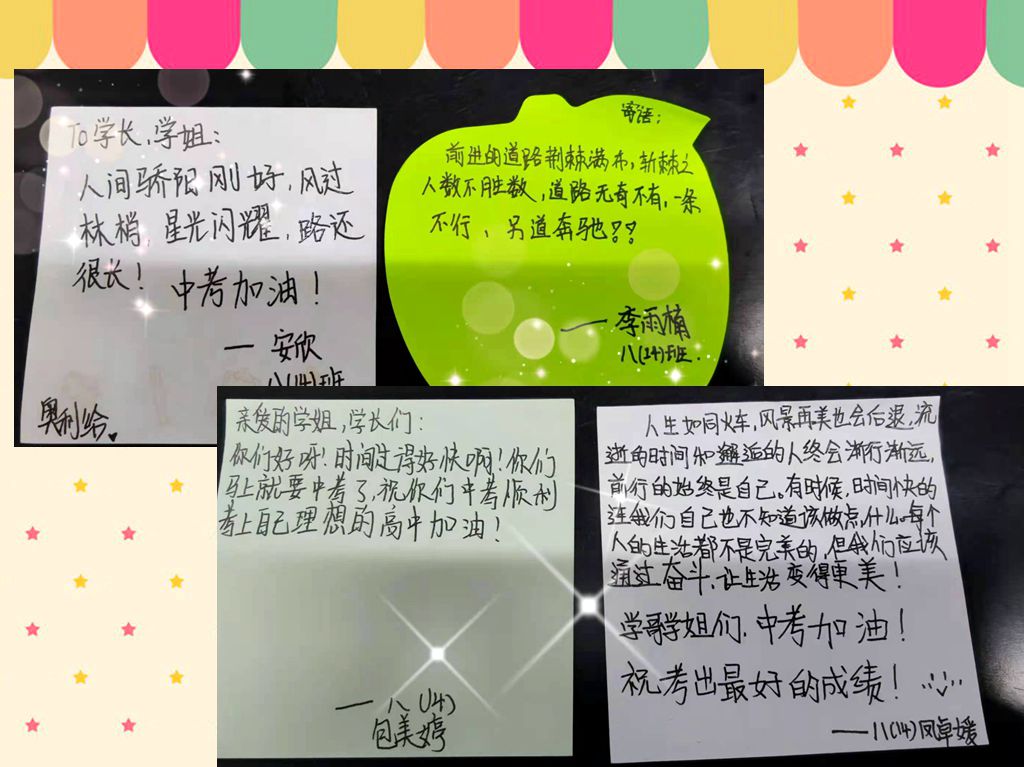 To学长，学姐：
人间骄阳刚好，风过
林梢，星光闪耀，路还
很长！
中考加油！
— 安欣
八(14)班
奥利给
寄语：
前进的道路荆棘满布，斩棘之
人数不胜数，道路无奇不有，一条
不行、另道奔驰??
— 李雨楠
八(14)班.
亲爱的学姐，学长们：
你们好呀！时间过得好快啊！你们
马上就要中考了，祝你们中考顺利
考上自己理想的高中加油！
— 八(14)
包美婷
人生如同火车，风景再美也会后退，流
逝的时间和邂逅的人终会渐行渐远，
前行的始终是自己。有时候，时间快的
连我们自己也不知道该做点什么。每个
人的生活都不是完美的，但我们应该
通过奋斗、让生活变得更美！
学哥学姐们，中考加油！
祝考出最好的成绩！
——八(14)凤卓媛